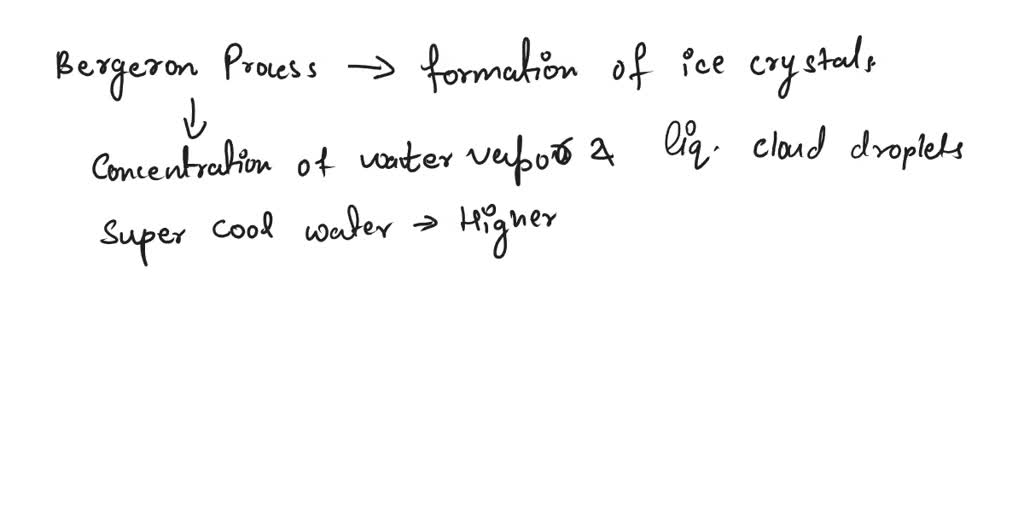 Bergeron Process → formation of ice crystals
↓
Concentration of water vapor & liq. cloud droplets
Super cool water → Higher